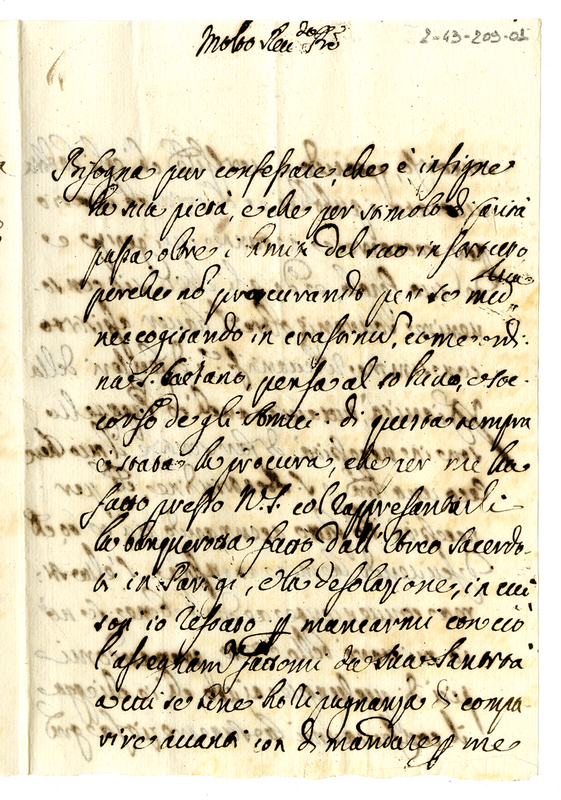 Molto Reu.do P.re
2-43-203-01
Bisogna pur confessare, che è insigne
la sua pietà, e che per stimolo di carità
passa oltre i limiti del suo instituto,
perche nō procurando per se
nec cogitando in crastinū, come ordi-
na S. Gaetano, pensa al sollievo, e soc-
corso de gli Amici. di questa tempra
è stata la procura, che per me ha
fatto presso N.S. col rappresentarli
la banquerotta fatta dall'Ebreo Sacerdo-
ti in Parigi, e la desolazione, in cui
son io restato p mancarmi con ciò
l'assegnam.to fattomi da Sua Santità
a cui se bene ho ripugnanza di compa
rire auanti con dimandare p me